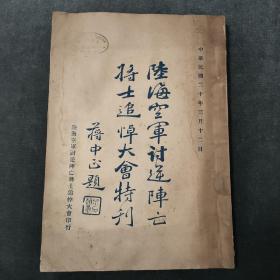 中華民國二十年三月十二日
陸海空軍討逆陣亡
將士追悼大會特刊
蔣中正題
陸海空軍討逆陣亡將士追悼大會印行